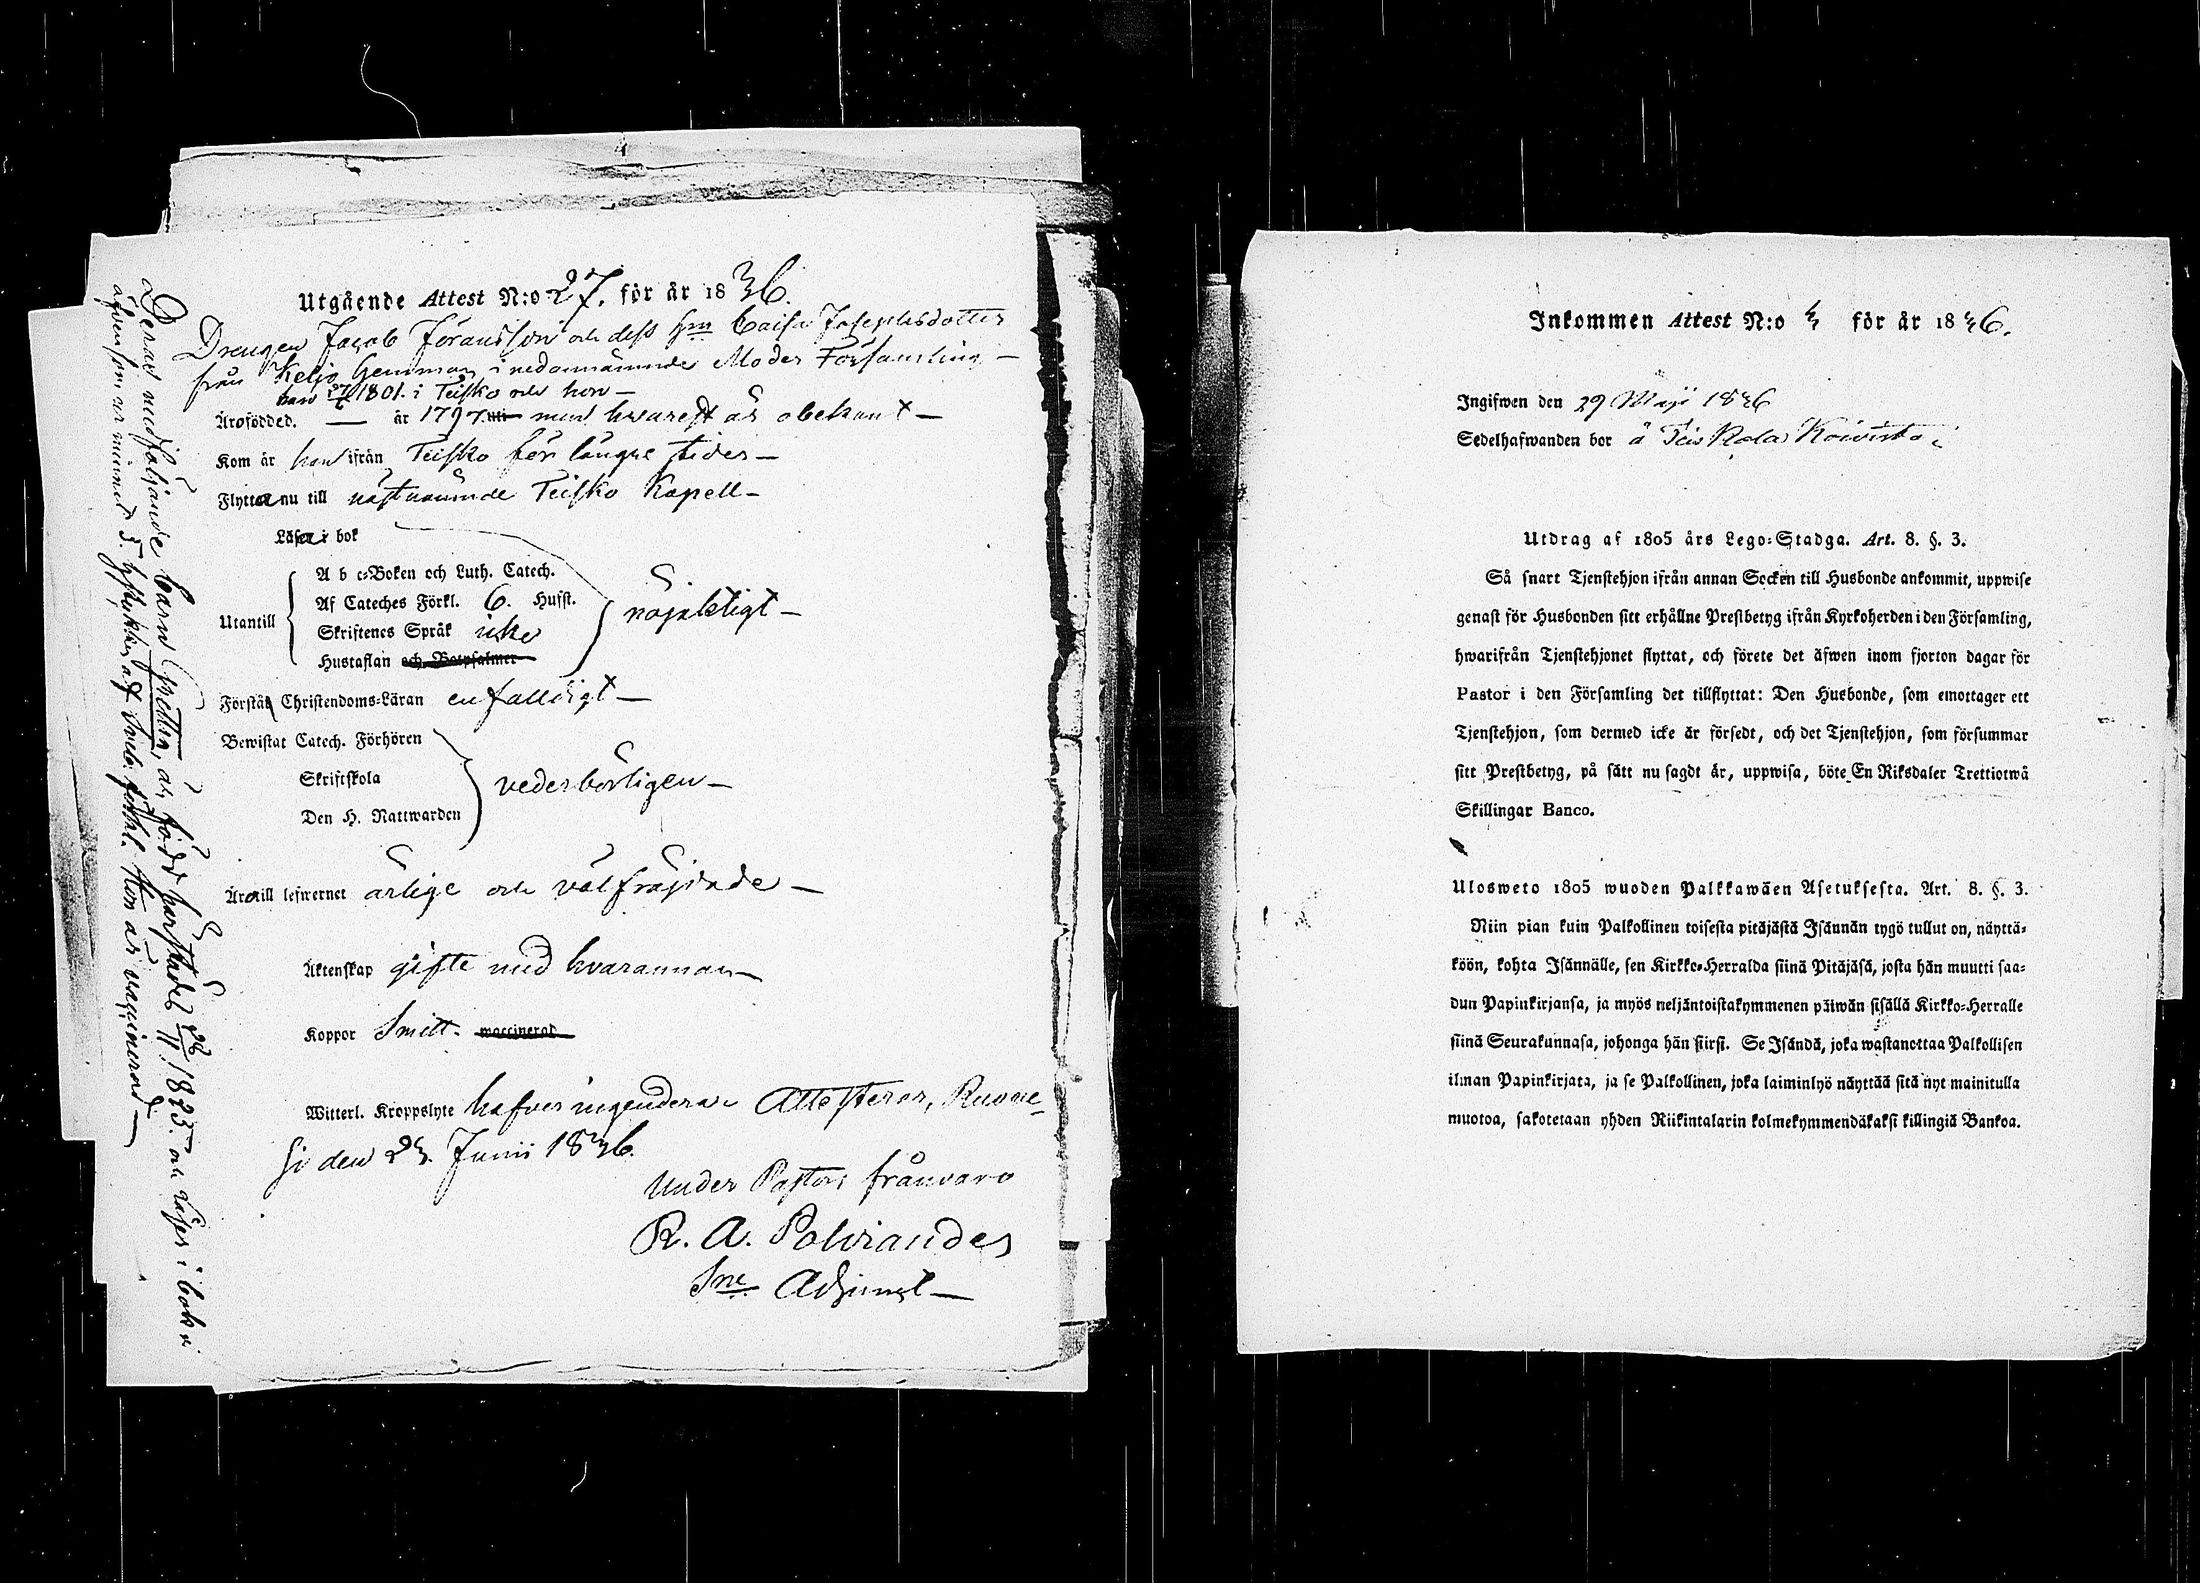 Utgående Attest N:o 27. för år 1836.
Drengen Jacob Jöransson och dess Hu Caisa Josephsdotter
från Keljo hemman i nedannämnde Moder Församling —
han 1801. i Teisko och hon —
Äro födde d. — år 1797. men hvarest är obekant —
Kom år han ifrån Teisko för längre tider —
Flytta nu till nästnämnde Teisko Kapell —
Läsa i bok
A b c-Boken och Luth. Catech.
Af Cateches Förkl. 6. Hufst.
Utantill
Skriftenes Språk icke
nöjaktigt —
Hustaflan och Botpsalmer
Förstå Christendoms-Läran enfaldigt —
Bewistat Catech. Förhören
Skriftskola
vederbörligen —
Den H. Nattwarden
Äro till lefwernet ärlige och välfräjdade —
Äktenskap gifte med hvarannan —
Koppor Smitt. waccinerad
Witterl. Kroppslyte hafver ingendera. Attesterar, Ruove-
si den 23. Junii 1836.
Under Pastors frånvaro
R. A. Polviander
Sne Adjunct —
Deras medföljande barn Hedda, är född härstädes 28/11 1825. och läser i bok
äfvensom ur minnet 5. hfstycken af Sveb. förkl. Hon är vaccinerad —
Inkommen Attest N:o 3 för år 1836.
Ingifwen den 29 Maji 1836
Sedelhafwanden bor å Teiskola Koivisto
Utdrag af 1805 års Lego-Stadga. Art. 8. §. 3.
Så snart Tjenstehjon ifrån annan Socken till Husbonde ankommit, uppwise
genast för Husbonden sitt erhållne Prestbetyg ifrån Kyrkoherden i den Församling,
hwarifrån Tjenstehjonet flyttat, och förete det äfwen inom fjorton dagar för
Pastor i den Församling det tillflyttat: Den Husbonde, som emottager ett
Tjenstehjon, som dermed icke är försedt, och det Tjenstehjon, som försummar
sitt Prestbetyg, på sätt nu sagdt är, uppwisa, böte En Riksdaler Trettiotwå
Skillingar Banco.
Ulosweto 1805 wuoden Palkkawäen Asetuksesta. Art. 8. §. 3.
Niin pian kuin Palkollinen toisesta pitäjästä Isännän tygö tullut on, näyttä-
köön, kohta Isännälle, sen Kirkko-Herralda siinä Pitäjäsä, josta hän muutti saa-
dun Papinkirjansa, ja myös neljäntoistakymmenen päiwän sisällä Kirkko-Herralle
siinä Seurakunnasa, johonga hän siirsi. Se Isändä, joka wastanottaa Palkollisen
ilman Papinkirjata, ja se Palkollinen, joka laiminlyö näyttää sitä nyt mainitulla
muotoa, sakotetaan yhden Riikintalarin kolmekymmendäkaksi killingiä Bankoa.